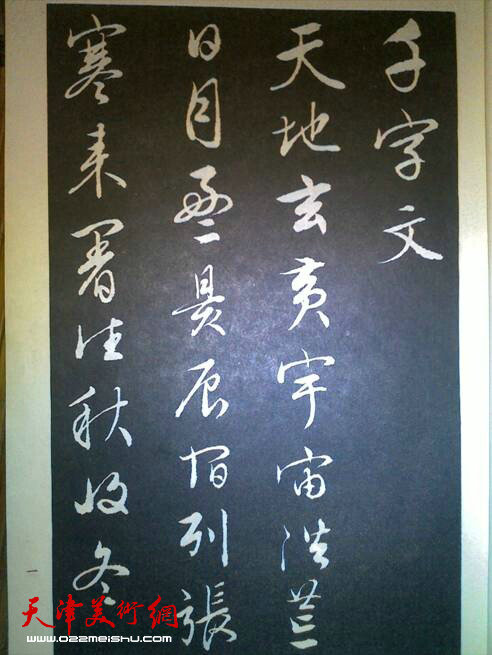 千字文
天地玄黄宇宙洪荒
日月盈昃辰宿列張
寒来暑往秋收冬
一
天津美術網
www.022meishu.com